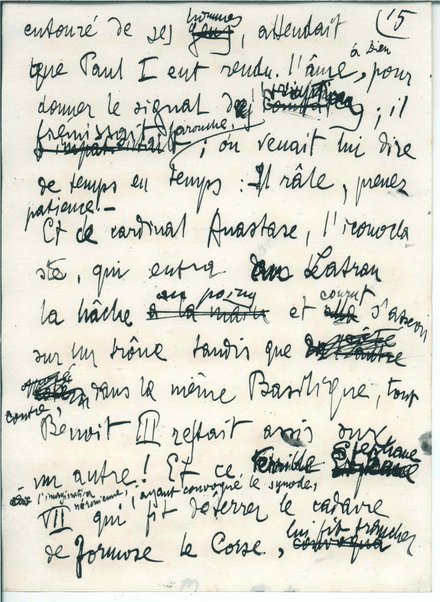 15
entouré de ses hommes, attendait
que Paul I eut rendu l'âme à Dieu, pour
donner le signal de l'irruption ; il
frémissait, farouche ; on venait lui dire
de temps en temps : Il râle, prenez
patience –
Et ce cardinal Anastase, l'iconocla
ste, qui entra au Latran
la hâche au poing et courut s'asseoir
sur un trône tandis que
dans la même Basilique, tout
contre,
Benoit III restait assis sur
un autre ! Et ce Stephane
VII à l'imagination néronienne, qui, ayant convoqué le synode, fit déterrer le cadavre
de Formose le Corse, lui fit trancher